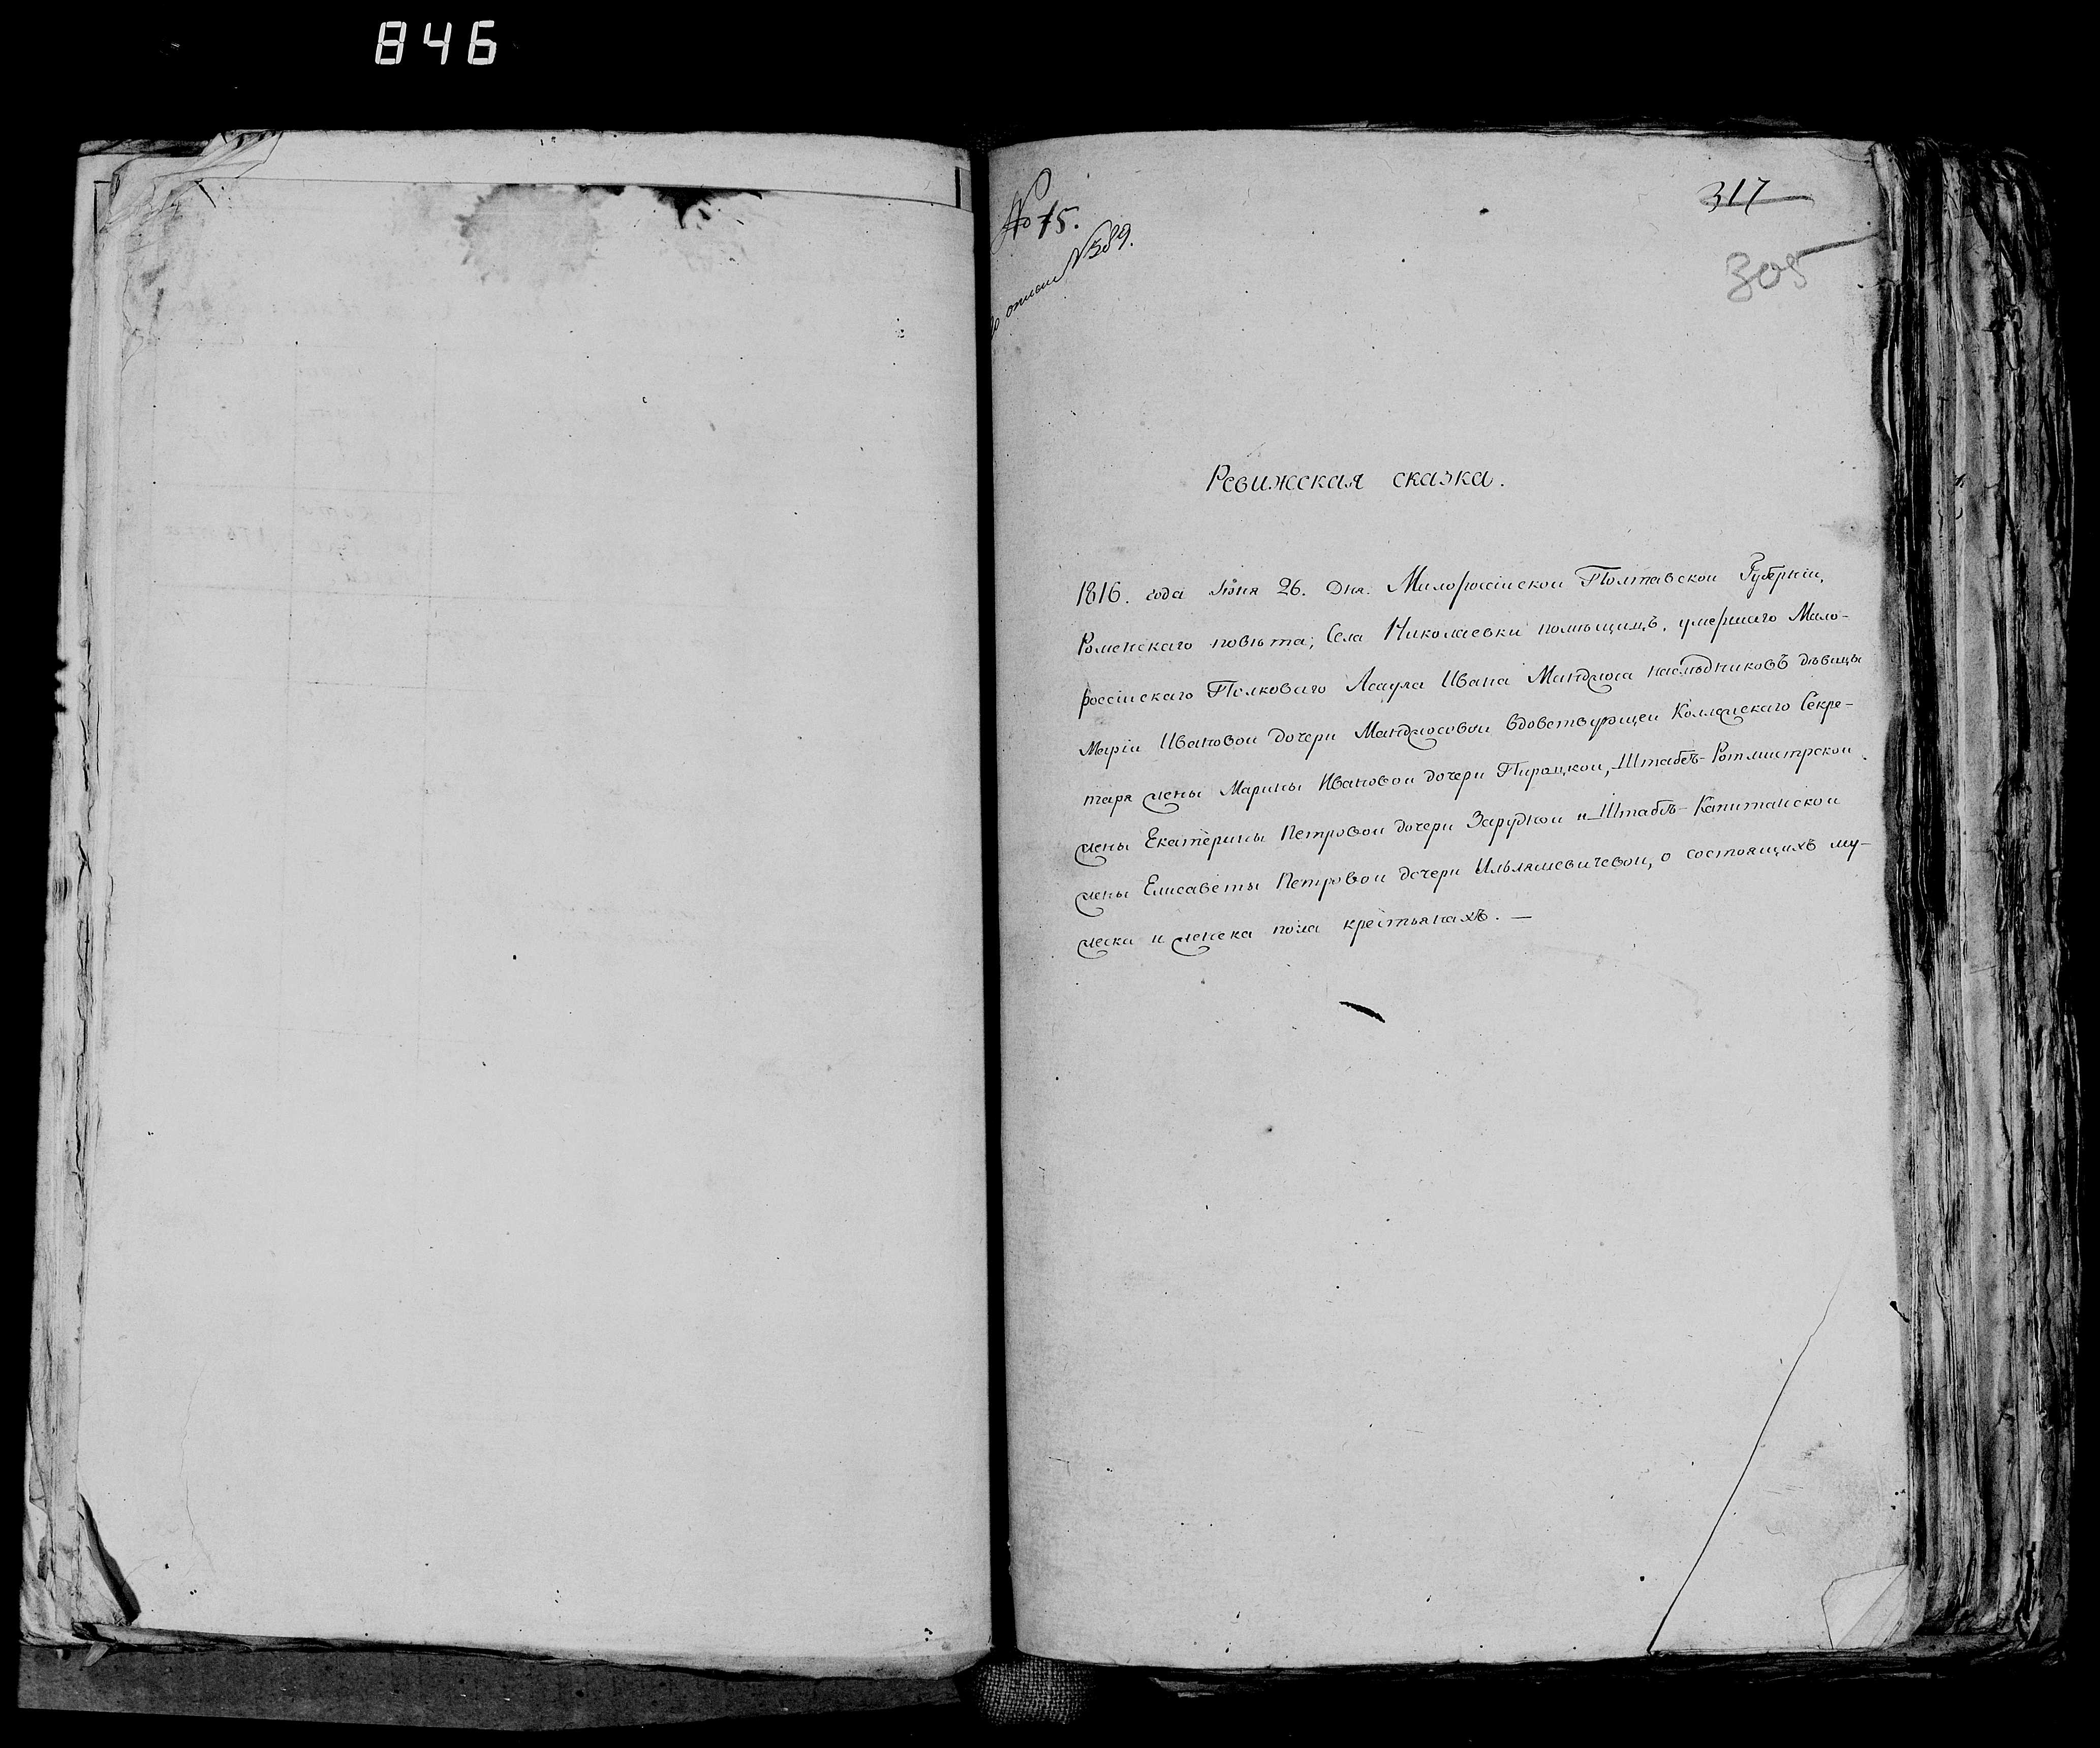 846
№ 15.
по описи №389.
317
305
Ревижская сказка.
1816. года Іюня 26. Дня. Малороссійской Полтавской Губерніи,
Роменскаго повѣта, Села Николаевки помѣщицъ, умершаго Мало-
россійскаго Полковаго Асаула Ивана Мандроса наслѣдниковъ дѣвицы
Маріи Ивановой дочери Мандросовой вдовствующей Коллежскаго Секре-
таря жены Марины Ивановой дочери Пироцкой, Штабсъ-Ротмистрской
жены Екатерины Петровой дочери Зарудной и Штабсъ-Капитанской
жены Елисаветы Петровой дочери Ильяшевичевой, о состоящихъ му-
жеска и женска пола крестьянахъ. —